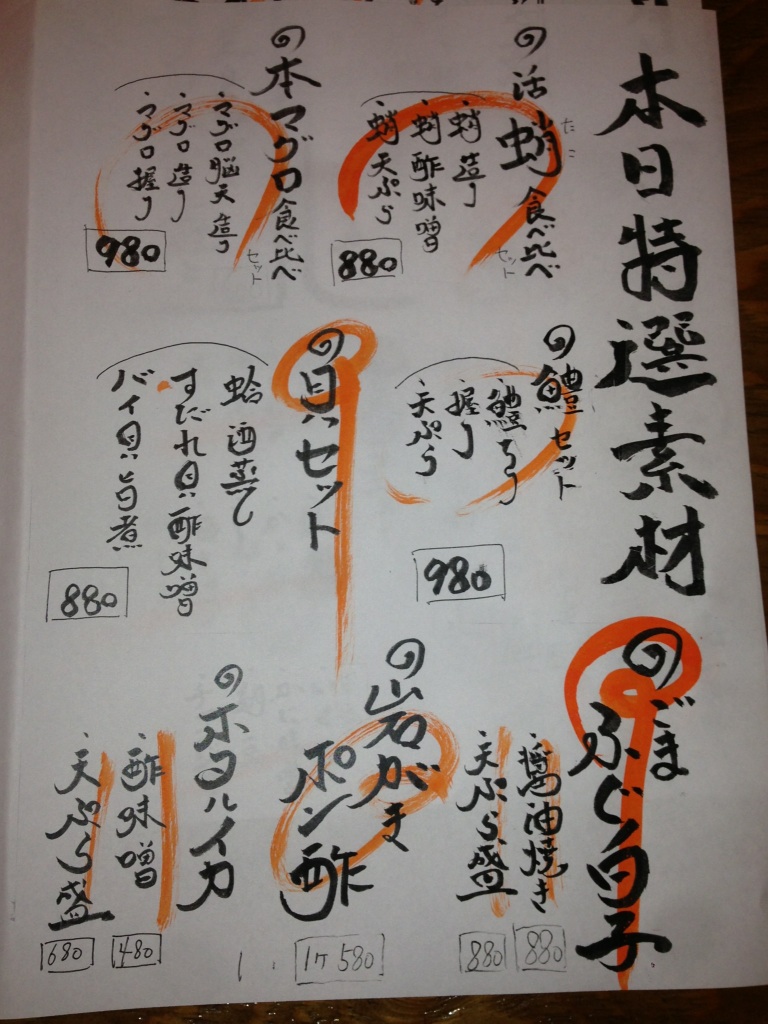 本日特選素材
活蛸食べ比べ
たこ
セット
・蛸造り
・蛸酢味噌
・蛸天ぷら
880
本マグロ食べ比べ
セット
・マグロ脳天造り
・マグロ造り
・マグロ握り
980
鱧セット
・鱧ちり
・握り
・天ぷら
980
貝セット
蛤酒蒸し
すだれ貝酢味噌
バイ貝旨煮
880
ごま
ふぐ白子
・醤油焼き
880
・天ぷら盛
880
岩がき
ポン酢
1ケ580
ホタルイカ
・酢味噌
480
・天ぷら盛
680